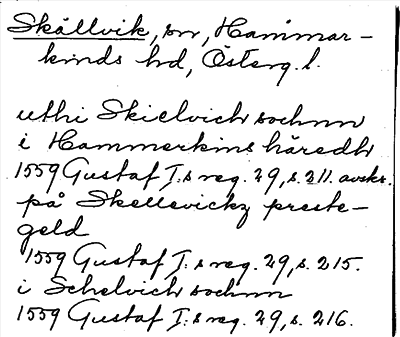 Skällvik, sn, Hammar-
kinds hd, Österg. l.
uthi Skielvich sochnn
i Hammerkins häredh
1559 Gustaf I:s reg. 29, s. 211. avskr.
på Skellevickz preste-
geld
1559 Gustaf I:s reg. 29, s. 215.
i Schelvich sochnn
1559 Gustaf I:s reg. 29, s. 216.